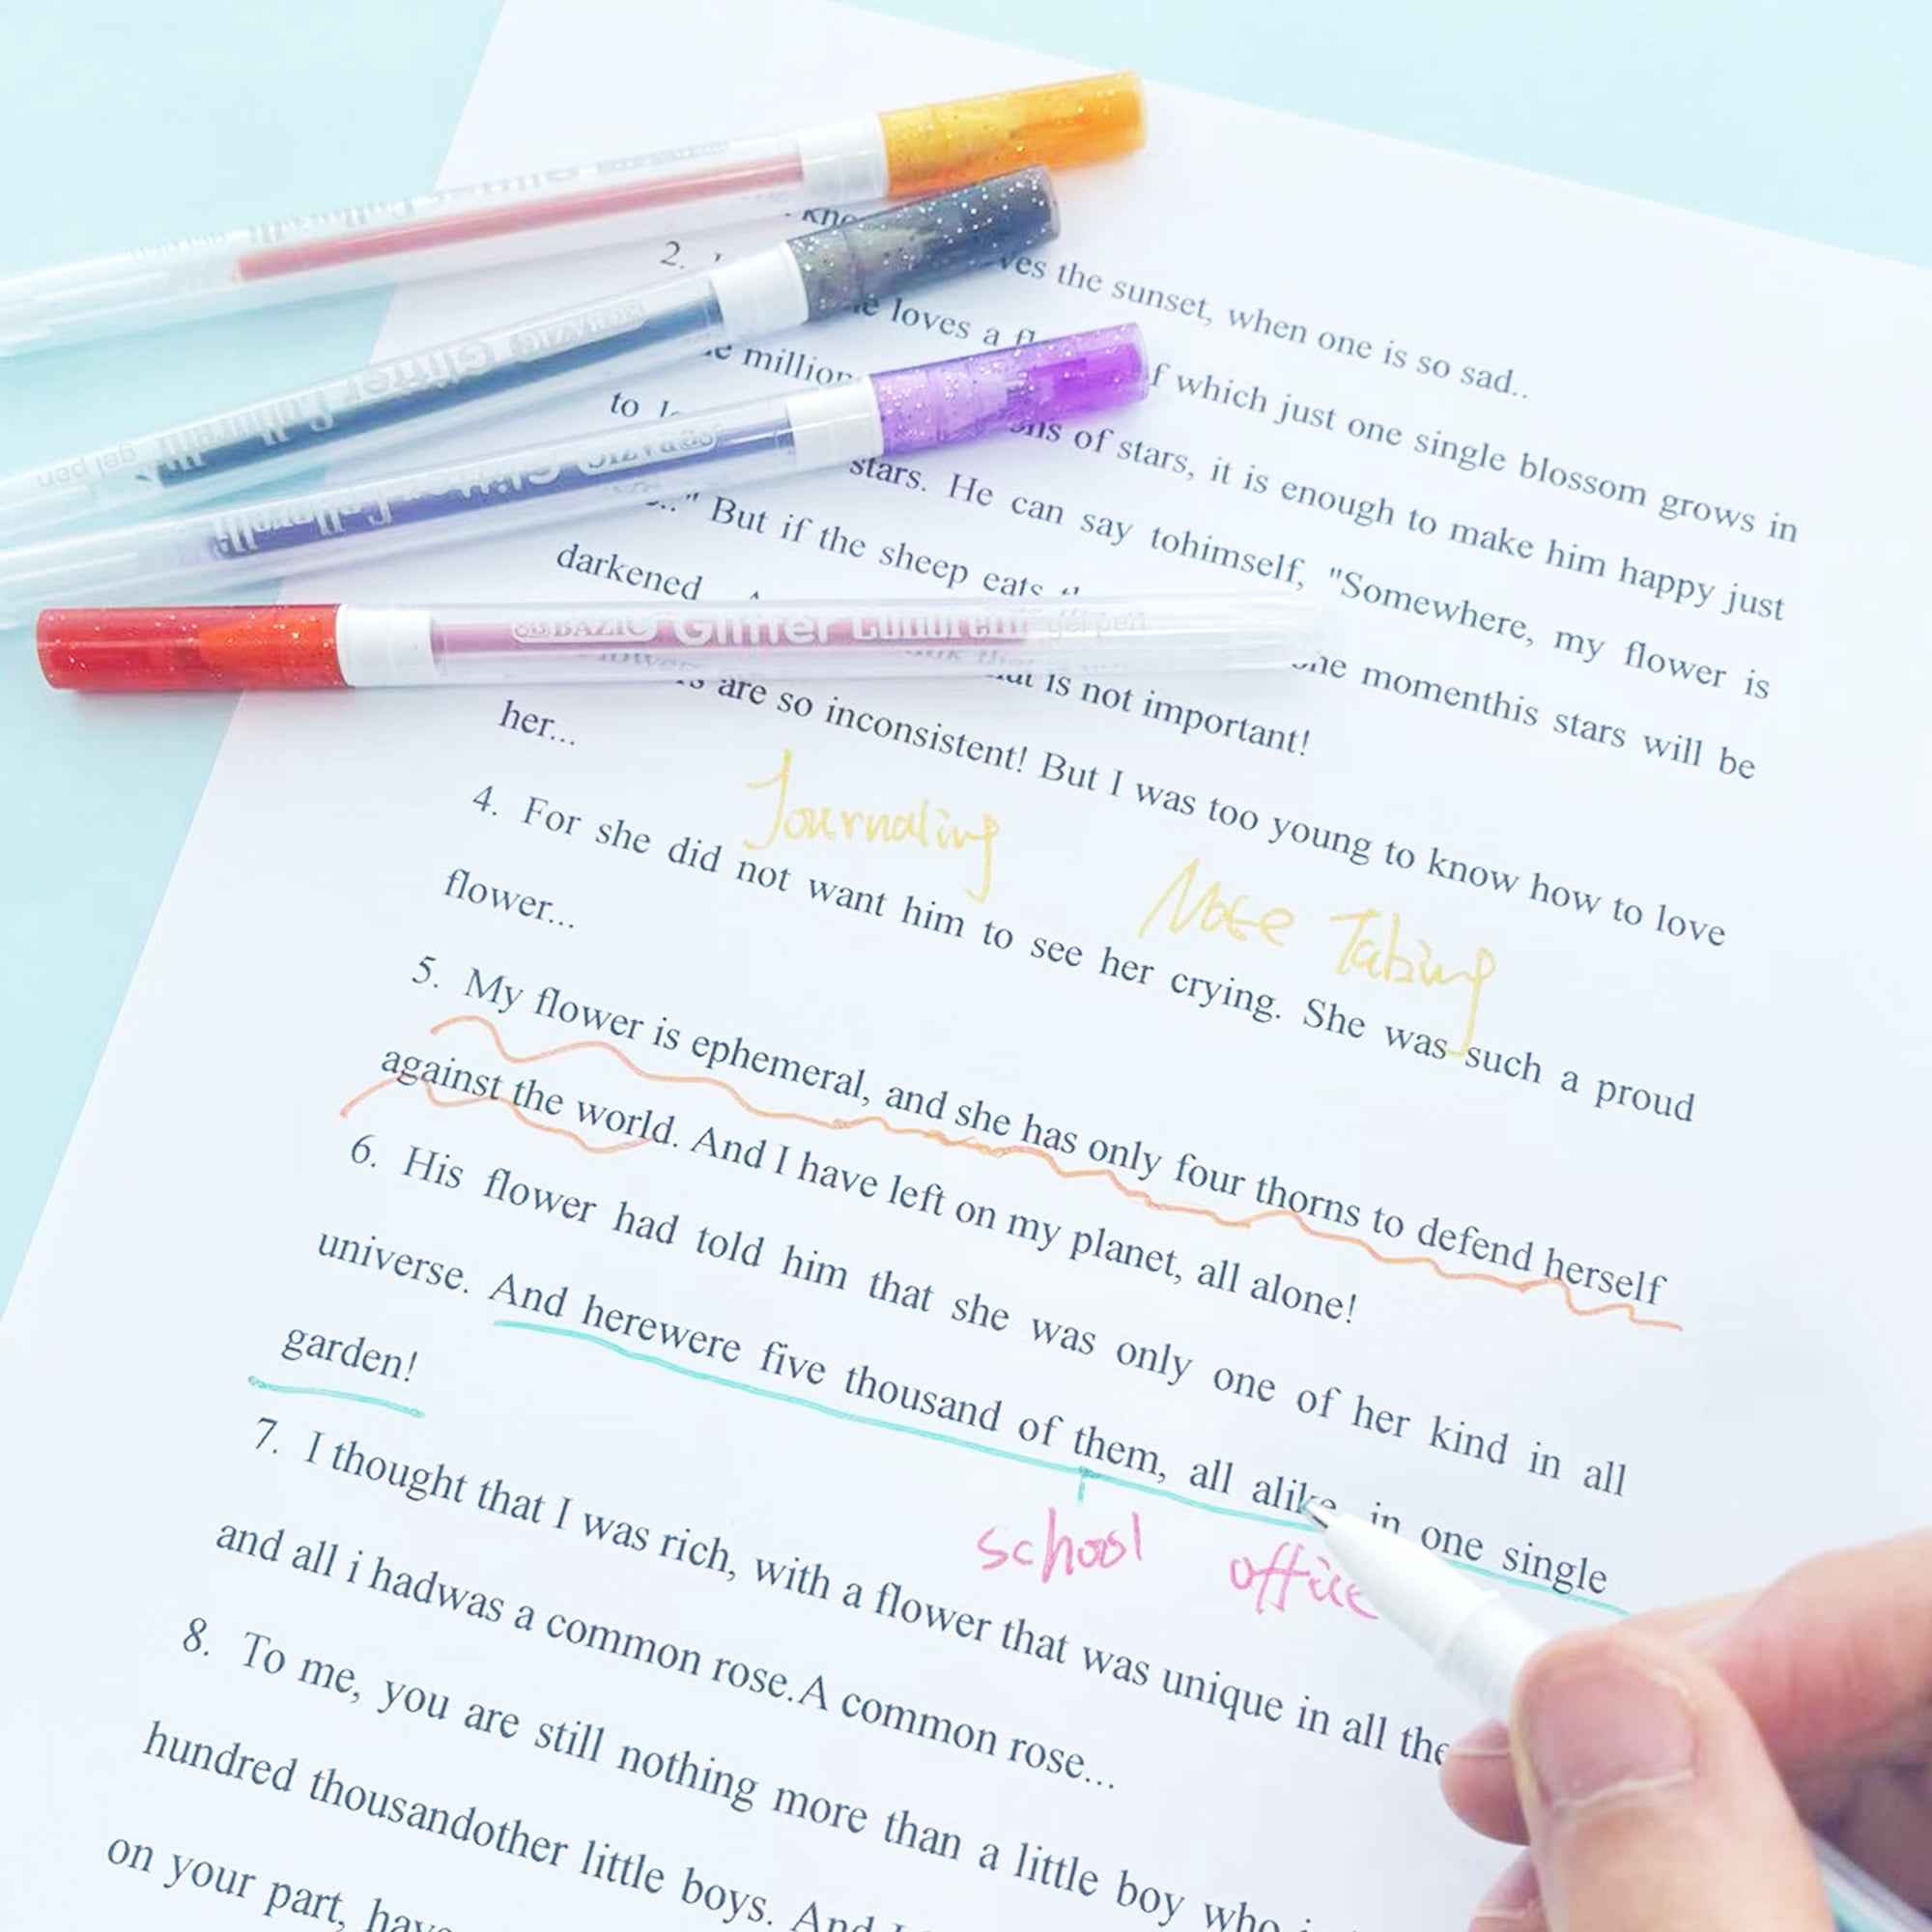 2.
ves the sunset, when one is so sad..
loves a
f which just one single blossom grows in
to
of stars, it is enough to make him happy just
stars. He can say tohimself, "Somewhere, my flower is
..." But if the sheep eats
momenthis stars will be
darkened
is not important!
are so inconsistent! But I was too young to know how to love
her...
4. For she did not want him to see her crying. She was such a proud
flower...
5. My flower is ephemeral, and she has only four thorns to defend herself
against the world. And I have left on my planet, all alone!
6. His flower had told him that she was only one of her kind in all
universe. And herewere five thousand of them, all alike, in one single
garden!
7. I thought that I was rich, with a flower that was unique in all the
and all i hadwas a common rose.A common rose...
8. To me, you are still nothing more than a little boy who
hundred thousandother little boys. And
on your part, have
Journaling
Note Tabing
school office
BAZIC Glitter Collorelli gel pen
BAZIC Glitter Collorelli gel pen
BAZIC Glitter Collorelli
Glitter Collorelli